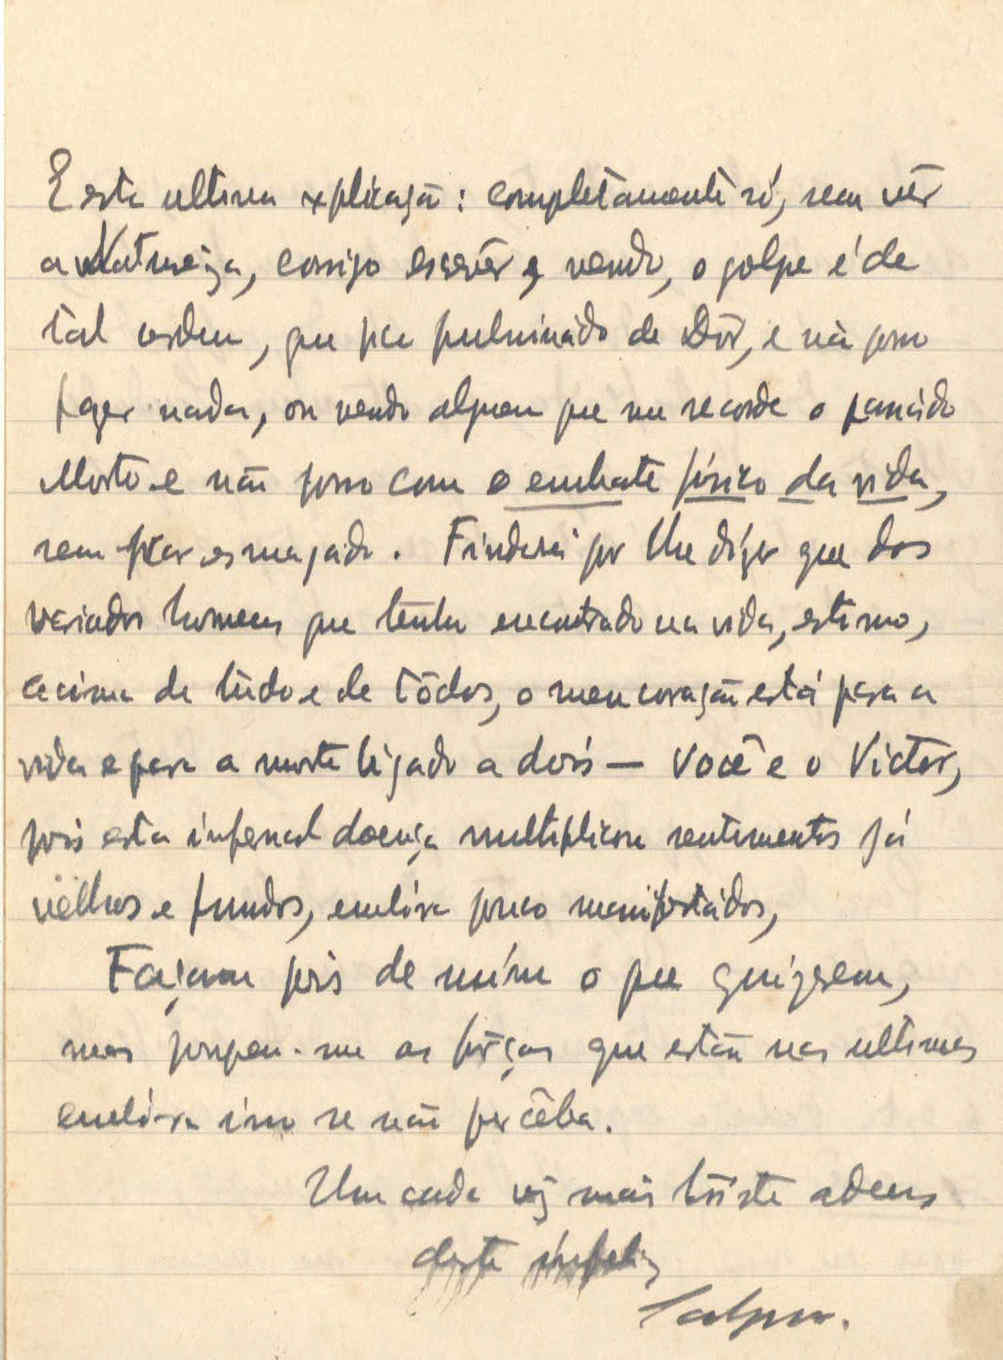 E esta ultima explicação: completamente só, sem vêr
a Natureza, consigo escrever e, vendo, o golpe é de
tal ordem, que fico fulminádo de Dôr, e não posso
fazer nada, ou vendo alguem que me recorde o passádo
Morto e não posso com o embate físico da vida,
sem ficar esmagado. Findarei por lhe dizer que dos
variados homens que tenho encontrado na vida, estimo,
acima de tudo e de tôdos, o meu coração está para a
vida e para a morte ligado a dois — Você e o Victor,
pois esta infernal doença multiplicou sentimentos já
velhos e fundos, embóra pouco manifestádos,
Façam pois de mím o que quizerem,
mas poupem-me as fôrças que estão nas ultimas
embóra isso se não percêba.
Um cada vez mais triste adeus
deste infeliz